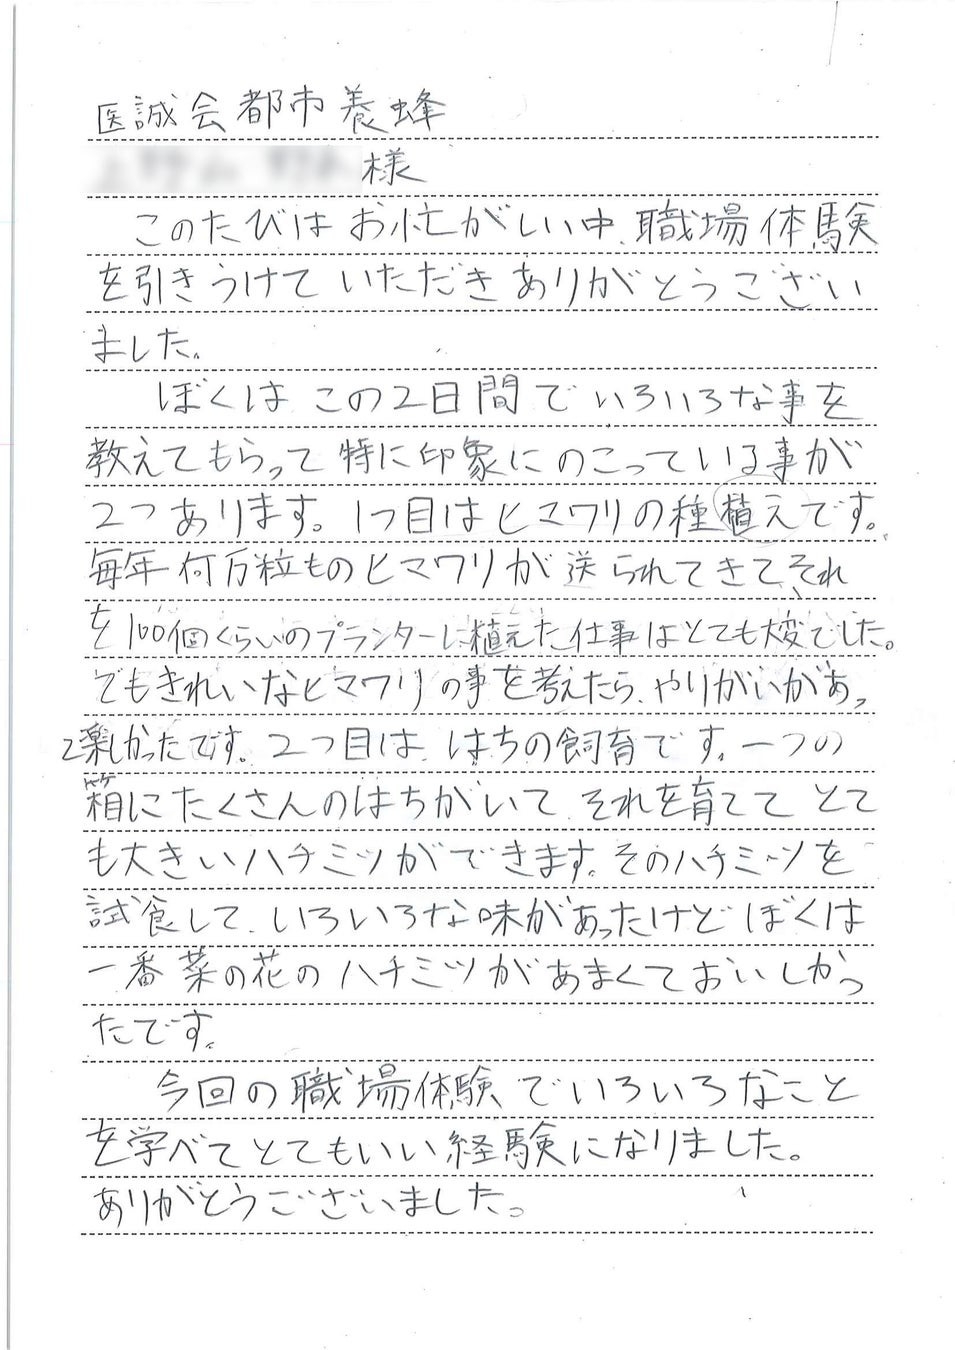 医誠会都市養蜂
様
このたびはお忙がしい中、職場体験
を引きうけていただきありがとうござい
ました。
ぼくはこの2日間でいろいろな事を
教えてもらって特に印象にのこっている事が
2つあります。1つ目はヒマワリの種植えです。
毎年何万粒ものヒマワリが送られてきて、それ
を100個くらいのプランターに植えた仕事はとても大変でした。
でもきれいなヒマワリの事を考えたら、やりがいがあっ
て楽しかったです。2つ目は、はちの飼育です。一つの
箱にたくさんのはちがいて、それを育ててとて
も大きいハチミツができます。そのハチミツを
試食して、いろいろな味があったけどぼくは
一番菜の花のハチミツがあまくておいしかっ
たです。
今回の職場体験でいろいろなこと
を学べてとてもいい経験になりました。
ありがとうございました。